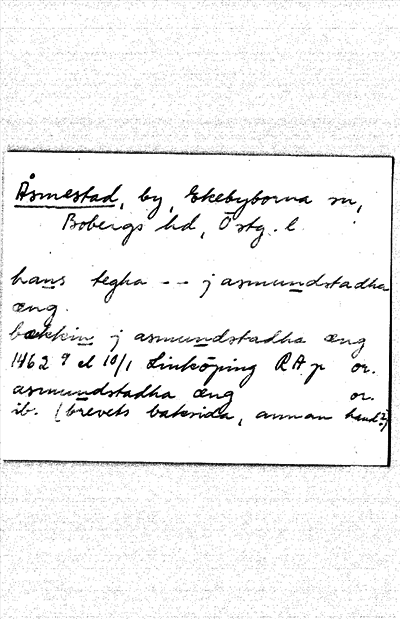 Åsmestad, by, Ekebyborna sn,
Bobergs hd, Östg. l.
hans tegha -- j asmundstadha
æng.
bækkin j asmundstadha æng
1462 9 el 10/1 Linköping RAp or.
asmundstadha æng or.
ib. (brevets baksida, annan hand?)